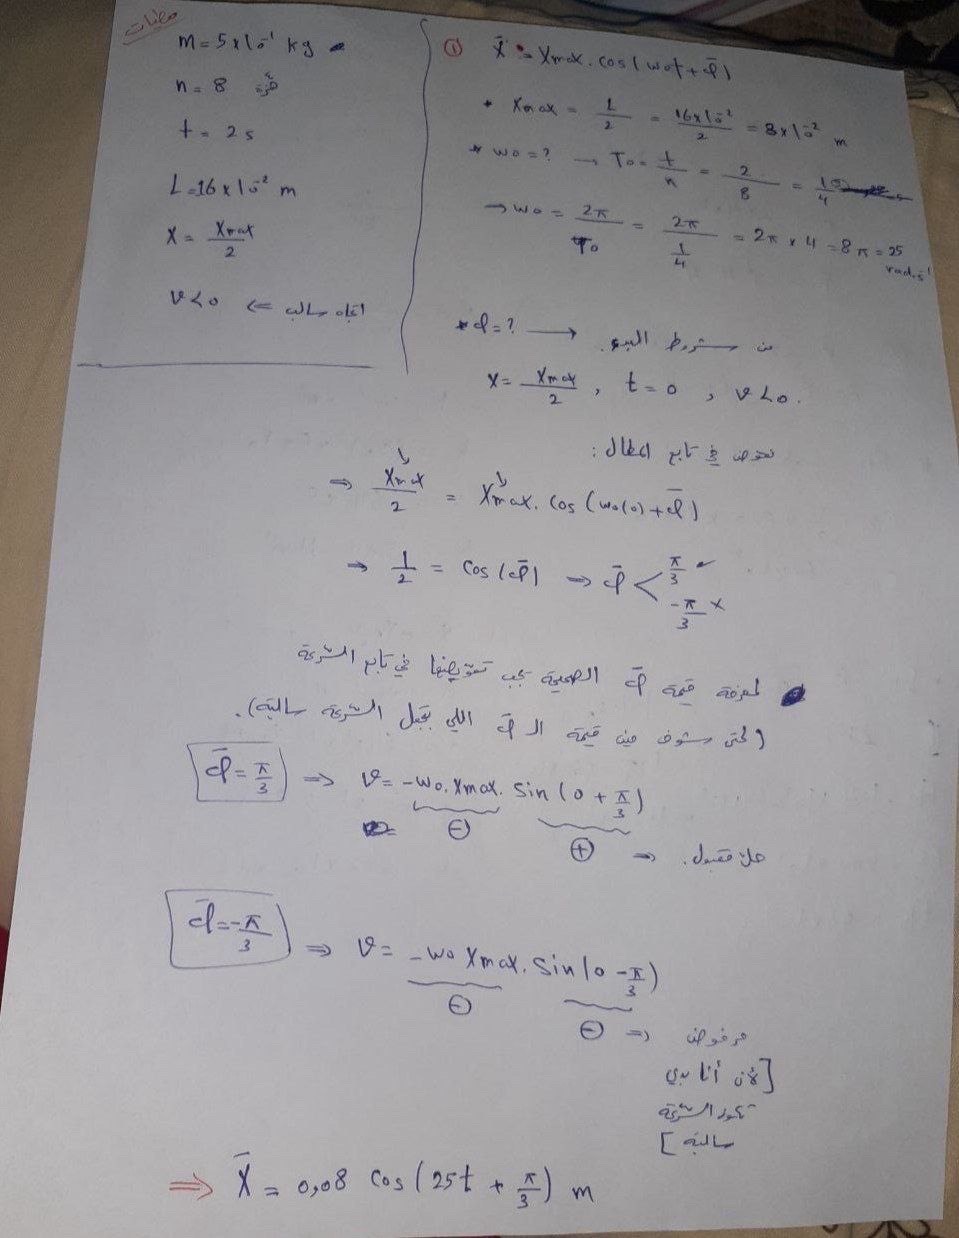 معطيات
m = 5 x 10⁻¹ kg
n = 8 هزة
t = 2 s
L = 16 x 10⁻² m
x = Xmax / 2
v < 0 ⇐ اتجاه سالب
① x̄ = Xmax . cos(ω₀t + φ̄)
* Xmax = L/2 = 16x10⁻²/2 = 8x10⁻² m
* ω₀ = ? → T₀ = t/n = 2/8 = 1/4
→ ω₀ = 2π/T₀ = 2π/(1/4) = 2π x 4 = 8π = 25 rad.s⁻¹
* φ = ? → من شروط البدء.
x = Xmax/2 , t = 0 , v < 0.
نعوض في تابع المطال :
⇒ Xmax/2 = Xmax . cos(ω₀(0) + φ̄)
⇒ 1/2 = cos(φ̄) ⇒ φ̄ < π/3 ✓
-π/3 ×
لمعرفة قيمة φ̄ الصحيحة يجب تعويضها في تابع السرعة
(لحتى شوف مين قيمة الـ φ̄ اللي بتجعل السرعة سالبة).
φ̄ = π/3 ⇒ v = -ω₀ . Xmax . sin(0 + π/3)
⊖ ⊕ ⇒ حل مقبول.
φ̄ = -π/3 ⇒ v = -ω₀ Xmax . sin(0 - π/3)
⊖ ⊖ ⇒ مرفوض
[لأن أنا بدي
تكون السرعة
سالبة]
⇒ X̄ = 0,08 cos(25t + π/3) m